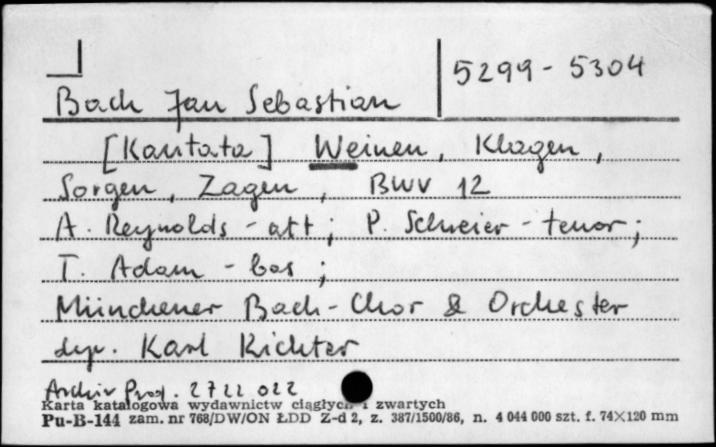 5299 - 5304
Bach Jan Sebastian
[Kantata] Weinen, Klagen,
Sorgen, Zagen, BWV 12
A. Reynolds - alt; P. Schreier - tenor;
T. Adam - bas;
Münchener Bach-Chor & Orchester
dyr. Karl Richter
Archiv Prod. 2722 022
Karta katalogowa wydawnictw ciągłych i zwartych
Pu-B-144 zam. nr 768/DW/ON ŁDD Z-d 2, z. 387/1500/86, n. 4 044 000 szt. f. 74×120 mm